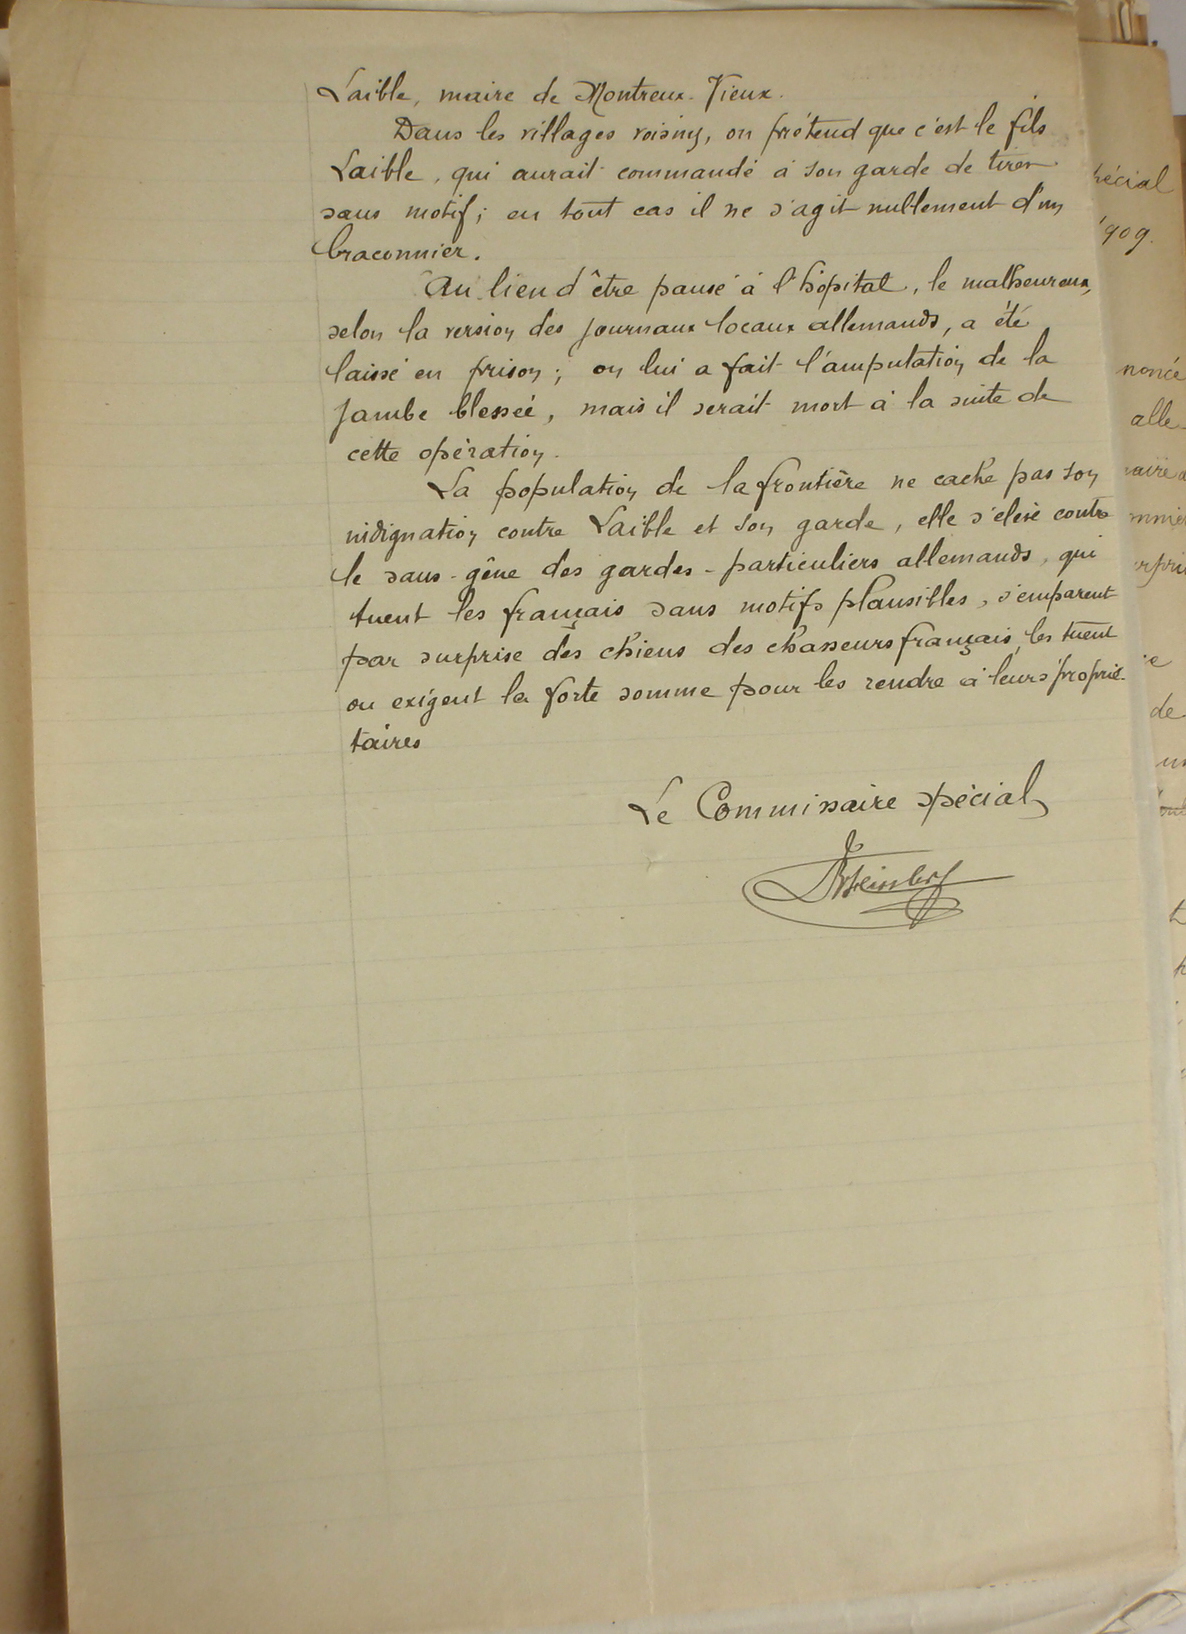 Laible, maire de Montreux-Vieux.
Dans les villages voisins, on prétend que c'est le fils
Laible, qui aurait commandé à son garde de tirer
sans motif; en tout cas il ne s'agit nullement d'un
braconnier.
Au lieu d'être pansé à l'hôpital, le malheureux,
selon la version des journaux locaux allemands, a été
laissé en prison; on lui a fait l'amputation de la
jambe blessée, mais il serait mort à la suite de
cette opération.
La population de la frontière ne cache pas son
indignation contre Laible et son garde, elle s'élève contre
le sans-gêne des gardes-particuliers allemands, qui
tuent les français sans motifs plausibles, s'emparent
par surprise des chiens des chasseurs français, les tuent
ou exigent la forte somme pour les rendre à leurs proprié-
taires
Le Commissaire spécial,
pécial
1909.
noncé
alle-
de